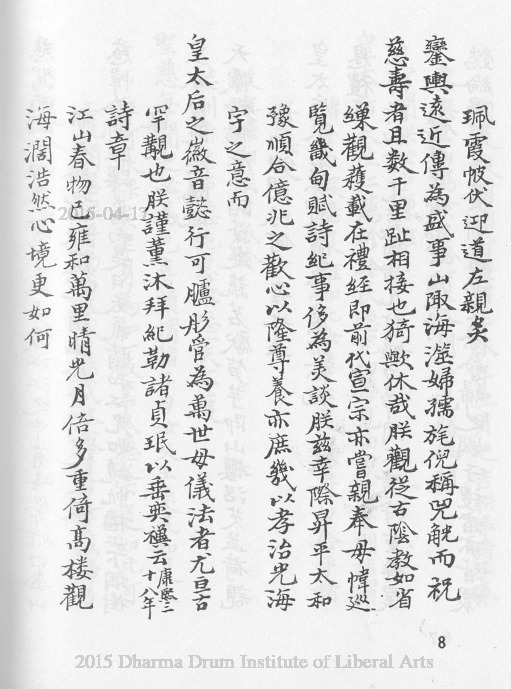 珮霞帔伏迎道左親矣
鑾輿遠近傳為盛事山陬海澨婦孺旄倪稱兕觥而祝
慈壽者且数千里趾相接也猗歟休哉朕觀從古陰教如省
繅觀蠶載在禮經即前代宣宗亦嘗親奉母幃巡
覽畿甸賦詩紀事侈為美談朕茲幸際昇平太和
豫順合億兆之歡心以隆尊養亦庶幾以孝治光海
宇之意而
皇太后之徽音懿行可臚彤管為萬世母儀法者尤亘古
罕覯也朕謹薰沐拜紀勒諸貞珉以垂奕禩云康熙二十八年
詩章
江山春物已雍和萬里晴光月倍多重倚高楼觀
海濶浩然心境更如何
8
2015-04-17
2015 Dharma Drum Institute of Liberal Arts